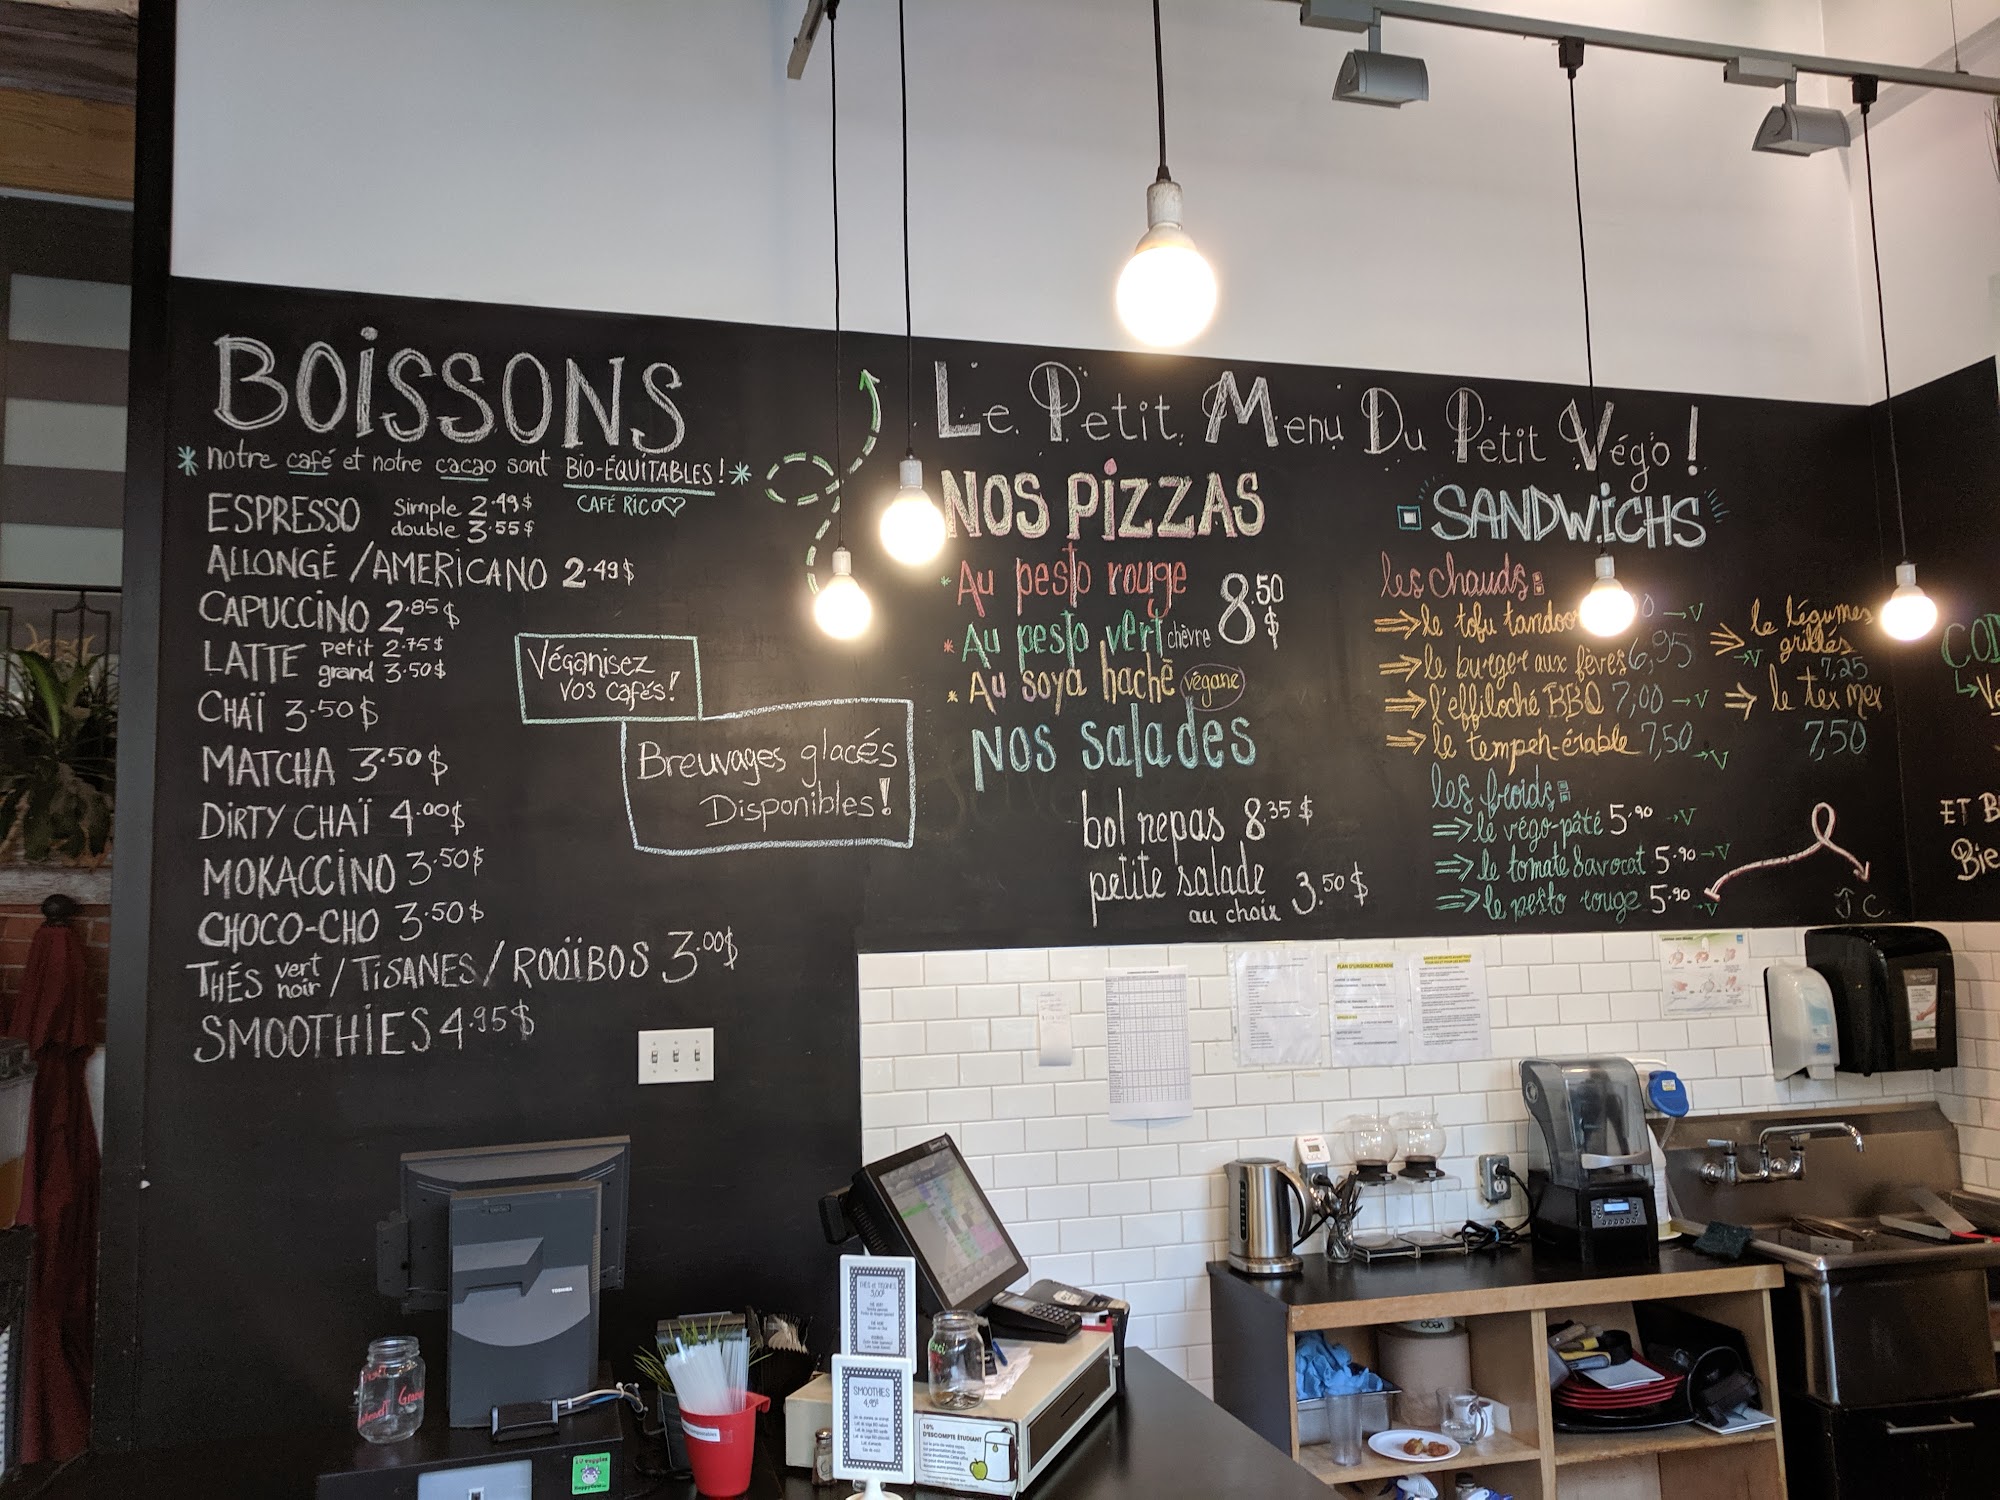 BOISSONS
* notre café et notre cacao sont BIO-ÉQUITABLES ! *
CAFÉ RICO♡
ESPRESSO simple 2.49$
double 3.55$
ALLONGÉ / AMERICANO 2.49$
CAPUCCINO 2.85$
LATTE petit 2.75$
grand 3.50$
CHAÏ 3.50$
MATCHA 3.50$
DIRTY CHAÏ 4.00$
MOKACCINO 3.50$
CHOCO-CHO 3.50$
THÉS vert noir / TISANES / ROOÏBOS 3.00$
SMOOTHIES 4.95$
Véganisez
vos cafés!
Breuvages glacés
Disponibles!
Le Petit Menu Du Petit Végo !
NOS PIZZAS
* Au pesto rouge
8.50 $
* Au pesto vert chèvre
* Au soya haché végane
Nos salades
bol repas 8.35 $
petite salade
au choix 3.50 $
SANDWICHS
les chauds:
⇒ le tofu
⇒ le burger aux fèves 6,95
⇒ l'effiloché BBQ 7,00 → V
⇒ le tempeh-érable 7,50 → V
⇒ le légumes
grillés
→ V 7,25
⇒ le tex mex
7,50
les froids:
⇒ le végo-pâté 5.90 → V
⇒ le tomate & avocat 5.90 → V
⇒ le pesto rouge 5.90 → V
J C.
ET B
Bie
PLAN D'URGENCE INCENDIE
TOSHIBA
THÉS et TISANES
3,00$
SMOOTHIES
4,95$
10%
D'ESCOMPTE ÉTUDIANT